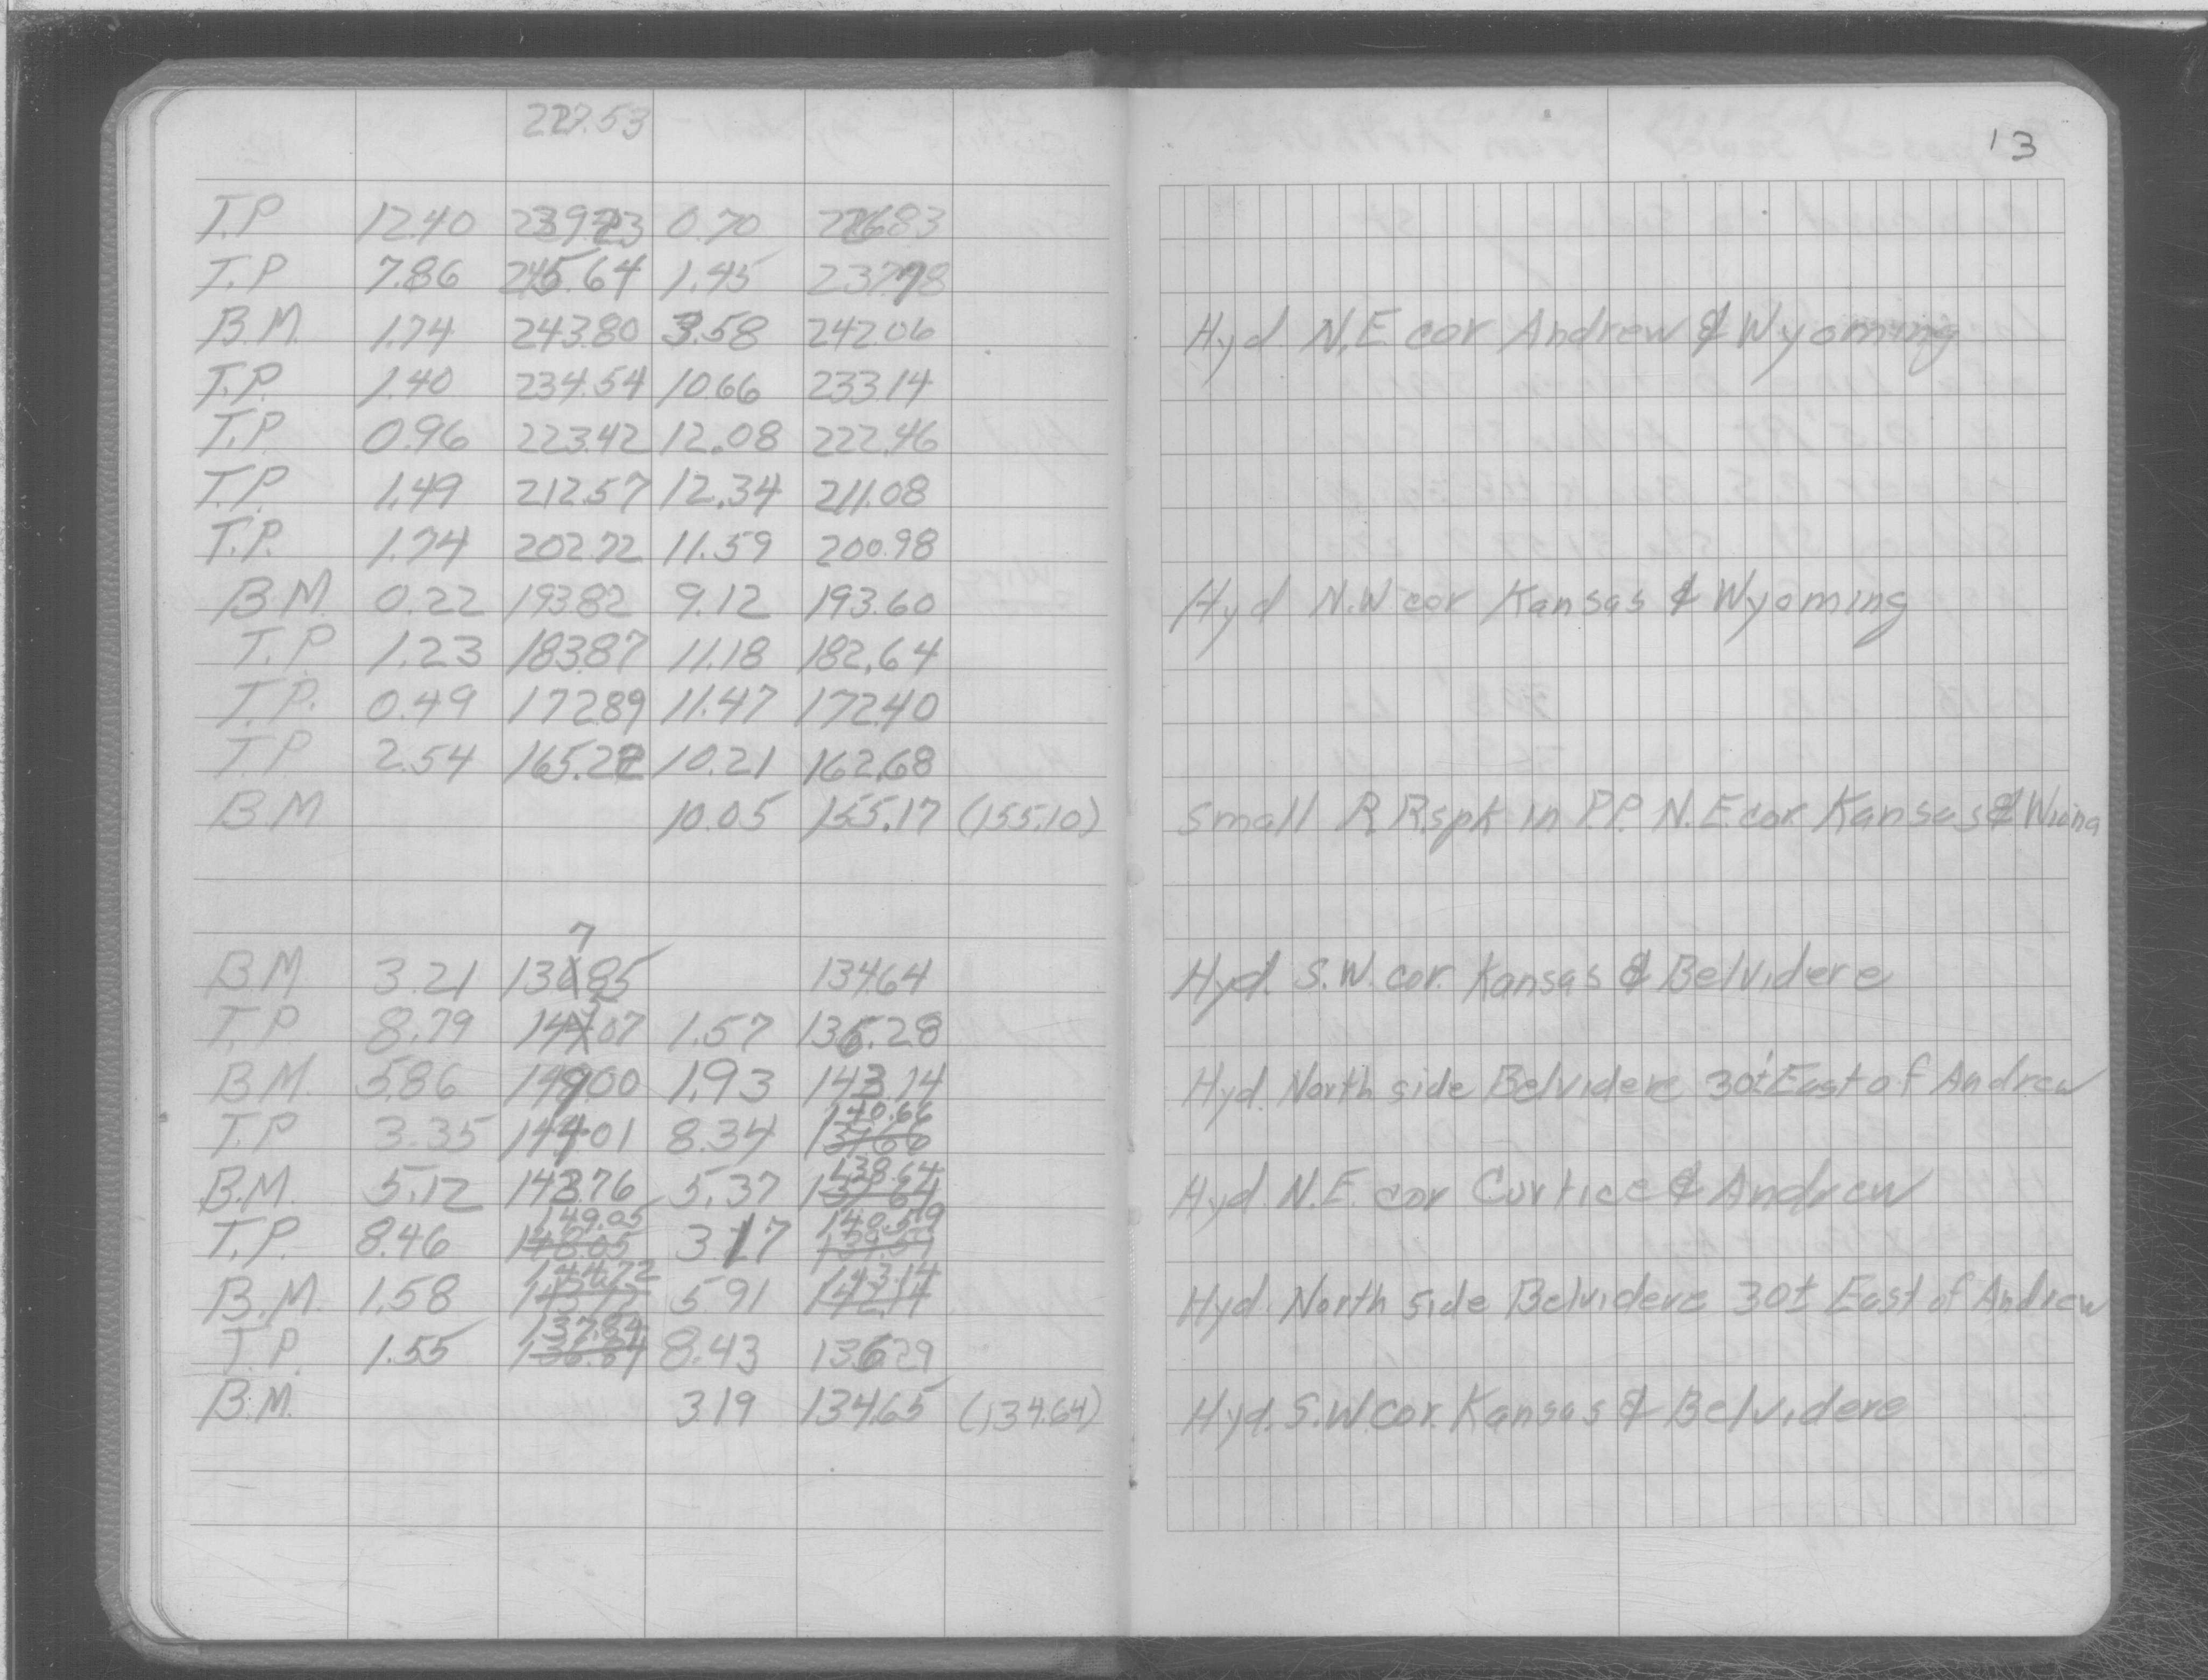 227.53
13
T.P 12.40 239.23 0.70 226.83
T.P 7.86 245.64 1.45 237.78
B.M. 1.74 243.80 3.58 242.06 Hyd N.E. cor Andrew & Wyoming
T.P. 1.40 234.54 10.66 233.14
T.P. 0.96 223.42 12.08 222.46
T.P. 1.49 212.57 12.34 211.08
T.P. 1.74 202.72 11.59 200.98
B.M. 0.22 193.82 9.12 193.60 Hyd N.W cor Kansas & Wyoming
T.P 1.23 183.87 11.18 182.64
T.P. 0.49 172.89 11.47 172.40
T.P. 2.54 165.22 10.21 162.68
BM 10.05 155.17 (155.10) Small R.R.spk in P.P. N.E. cor. Kansas &
7
B.M. 3.21 130.85 134.64 Hyd. S.W. cor. Kansas & Belvidere
T.P 8.79 145.07 1.57 136.28
B.M. 5.86 149.00 1.93 143.14 Hyd. North side Belvidere 30'± East of Andrew
140.66
T.P 3.35 144.01 8.34 139.66
138.64
B.M. 5.12 143.76 5.37 137.64 Hyd. N.E. cor Curtice & Andrew
149.05 140.59
T.P. 8.46 148.05 3.17 139.59
144.72 143.14
B.M. 1.58 143.72 5.91 142.14 Hyd. North side Belvidere 30± East of Andrew
137.84
T.P. 1.55 136.84 8.43 136.29
B.M. 3.19 134.65 (134.64) Hyd. S.W. cor. Kansas & Belvidere